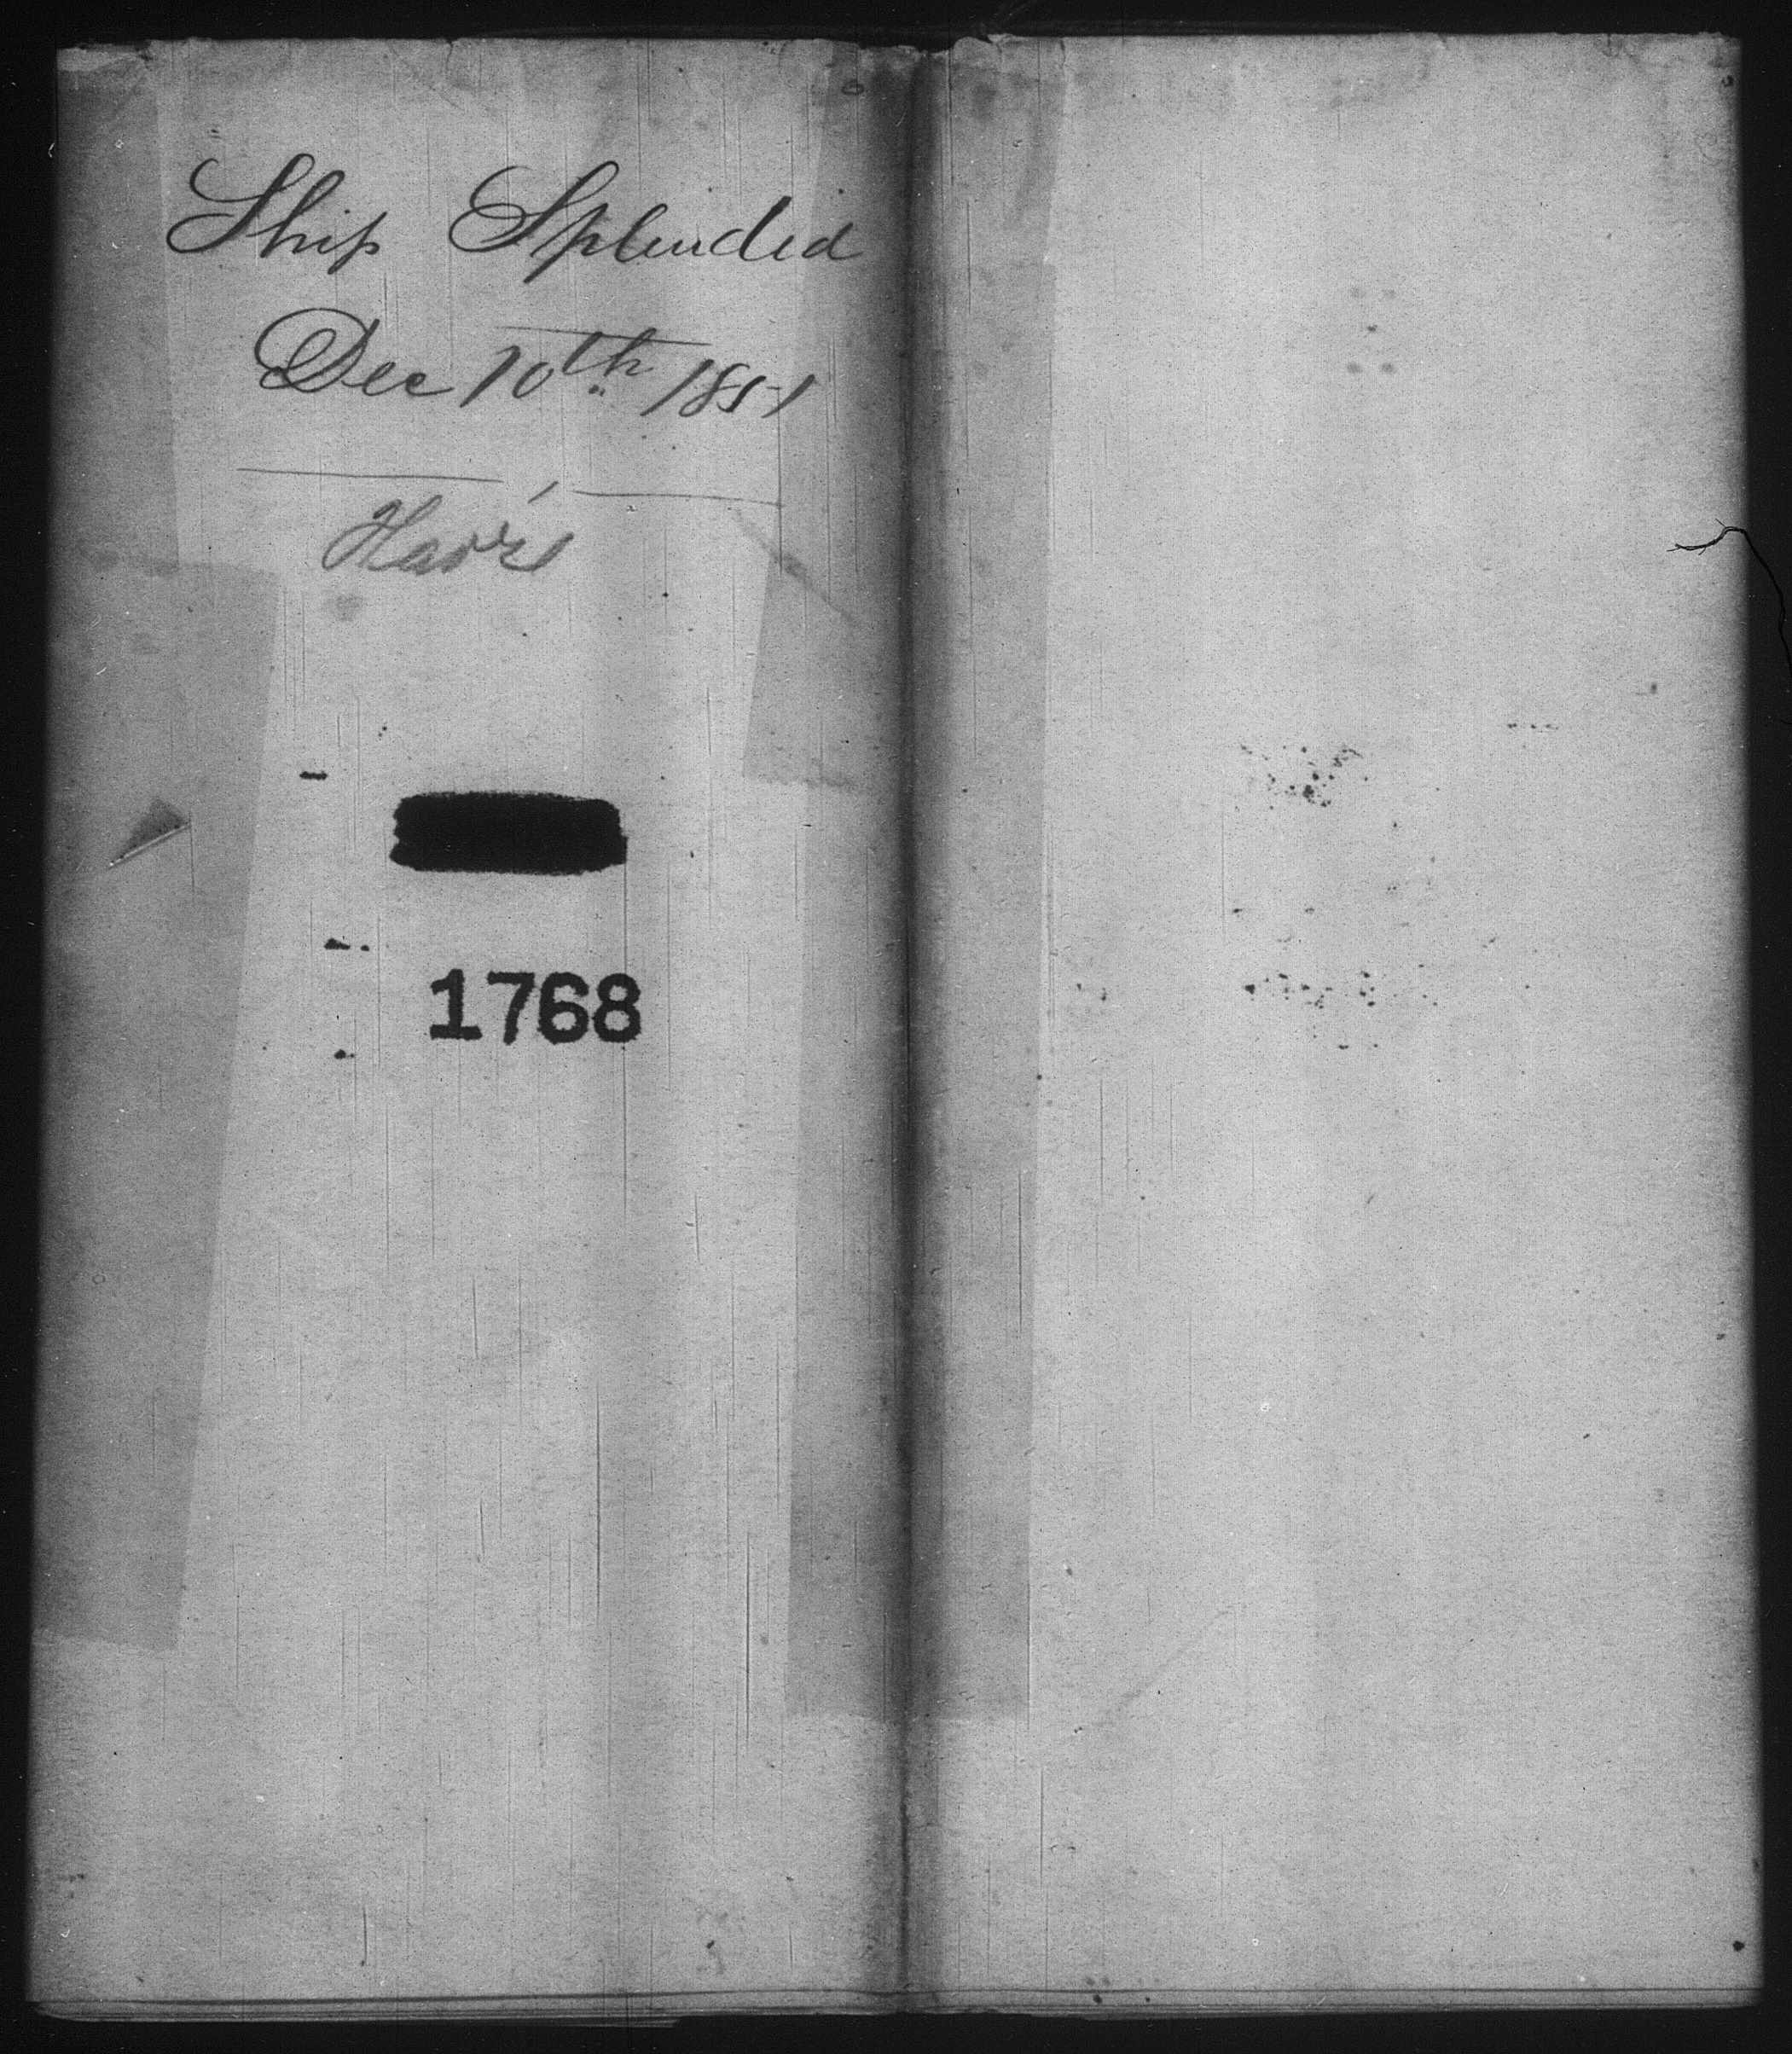 Ship Splendid
Dec 10th 1851
Havre
1768